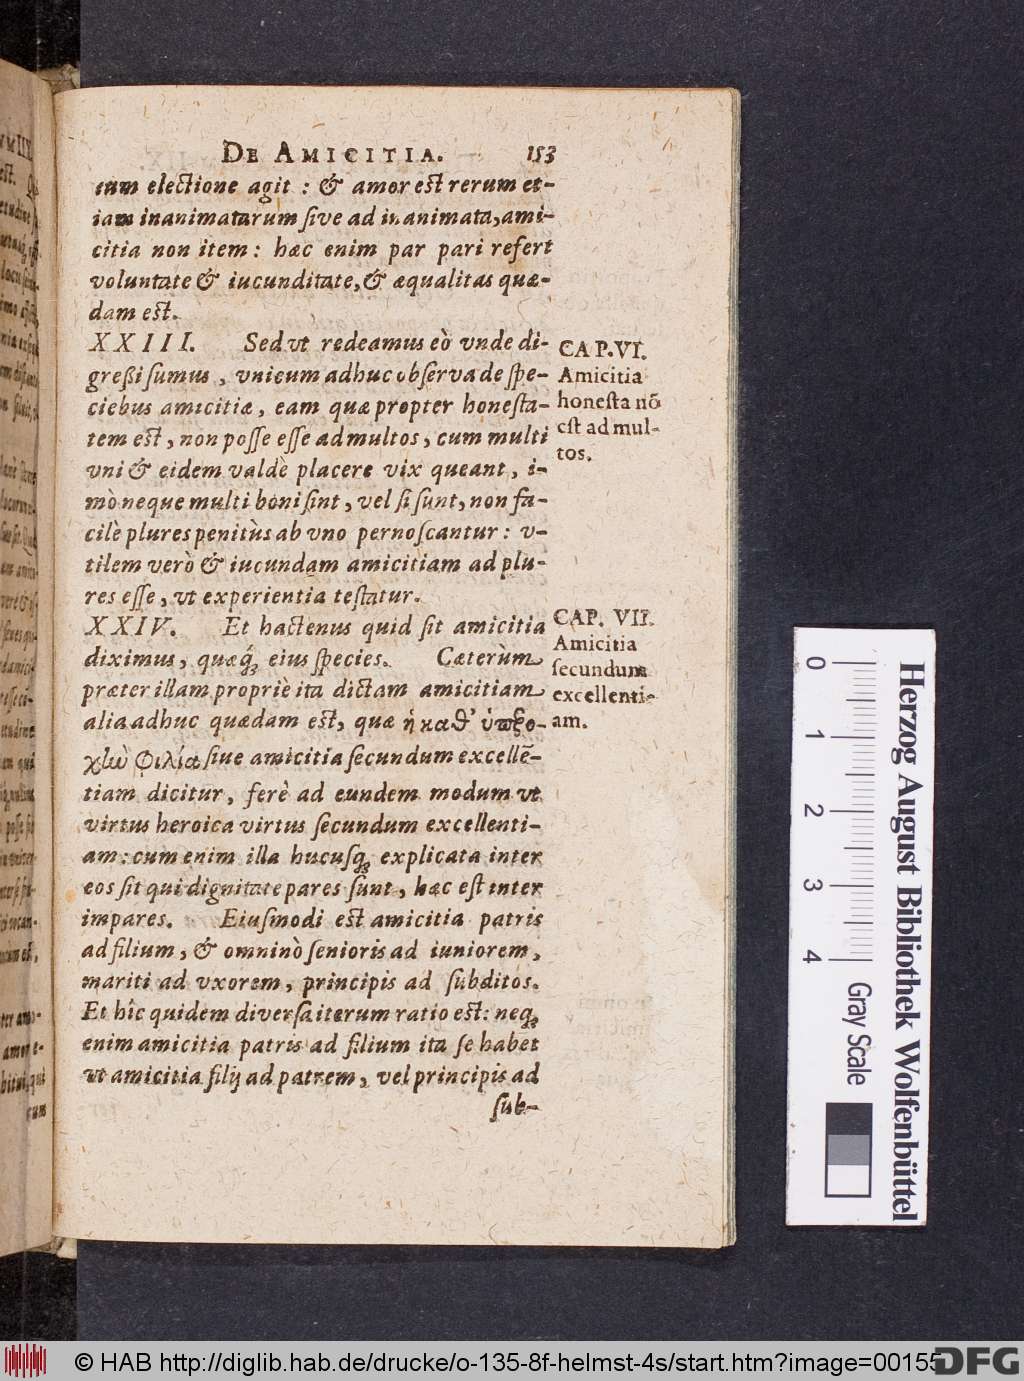 DE AMICITIA. 153
cum electione agit : & amor est rerum et-
iam inanimatarum sive ad inanimata, ami-
citia non item : hæc enim par pari refert
voluntate & iucunditate, & æqualitas quæ-
dam est.
XXIII. Sed vt redeamus eò vnde di-
greßi sumus, vnicum adhuc observa de spe-
ciebus amicitiæ, eam quæ propter honesta-
tem est, non posse esse ad multos, cum multi
vni & eidem valdè placere vix queant, i-
mò neque multi boni sint, vel si sunt, non fa-
cilè plures penitùs ab vno pernoscantur : v-
tilem verò & iucundam amicitiam ad plu-
res esse, vt experientia testatur.
CAP. VI.
Amicitia
honesta nõ
est ad mul-
tos.
XXIV. Et hactenus quid sit amicitia
diximus, quæq́; eius species. Cæterùm
præter illam propriè ita dictam amicitiam
alia adhuc quædam est, quæ ἡ καθ’ ὑπερο-
χὴν φιλία siue amicitia secundum excellẽ-
tiam dicitur, ferè ad eundem modum vt
virtus heroica virtus secundum excellenti-
am : cum enim illa hucusq; explicata inter
eos sit qui dignitate pares sunt, hæc est inter
impares. Eiusmodi est amicitia patris
ad filium, & omninò senioris ad iuniorem,
mariti ad vxorem, principis ad subditos.
Et hîc quidem diversa iterum ratio est : neq;
enim amicitia patris ad filium ita se habet
vt amicitia filij ad patrem, vel principis ad
sub-
CAP. VII.
Amicitia
secundum
excellenti-
am.
0 1 2 3 4
Gray Scale
Herzog August Bibliothek Wolfenbüttel
© HAB http://diglib.hab.de/drucke/o-135-8f-helmst-4s/start.htm?image=00155
DFG